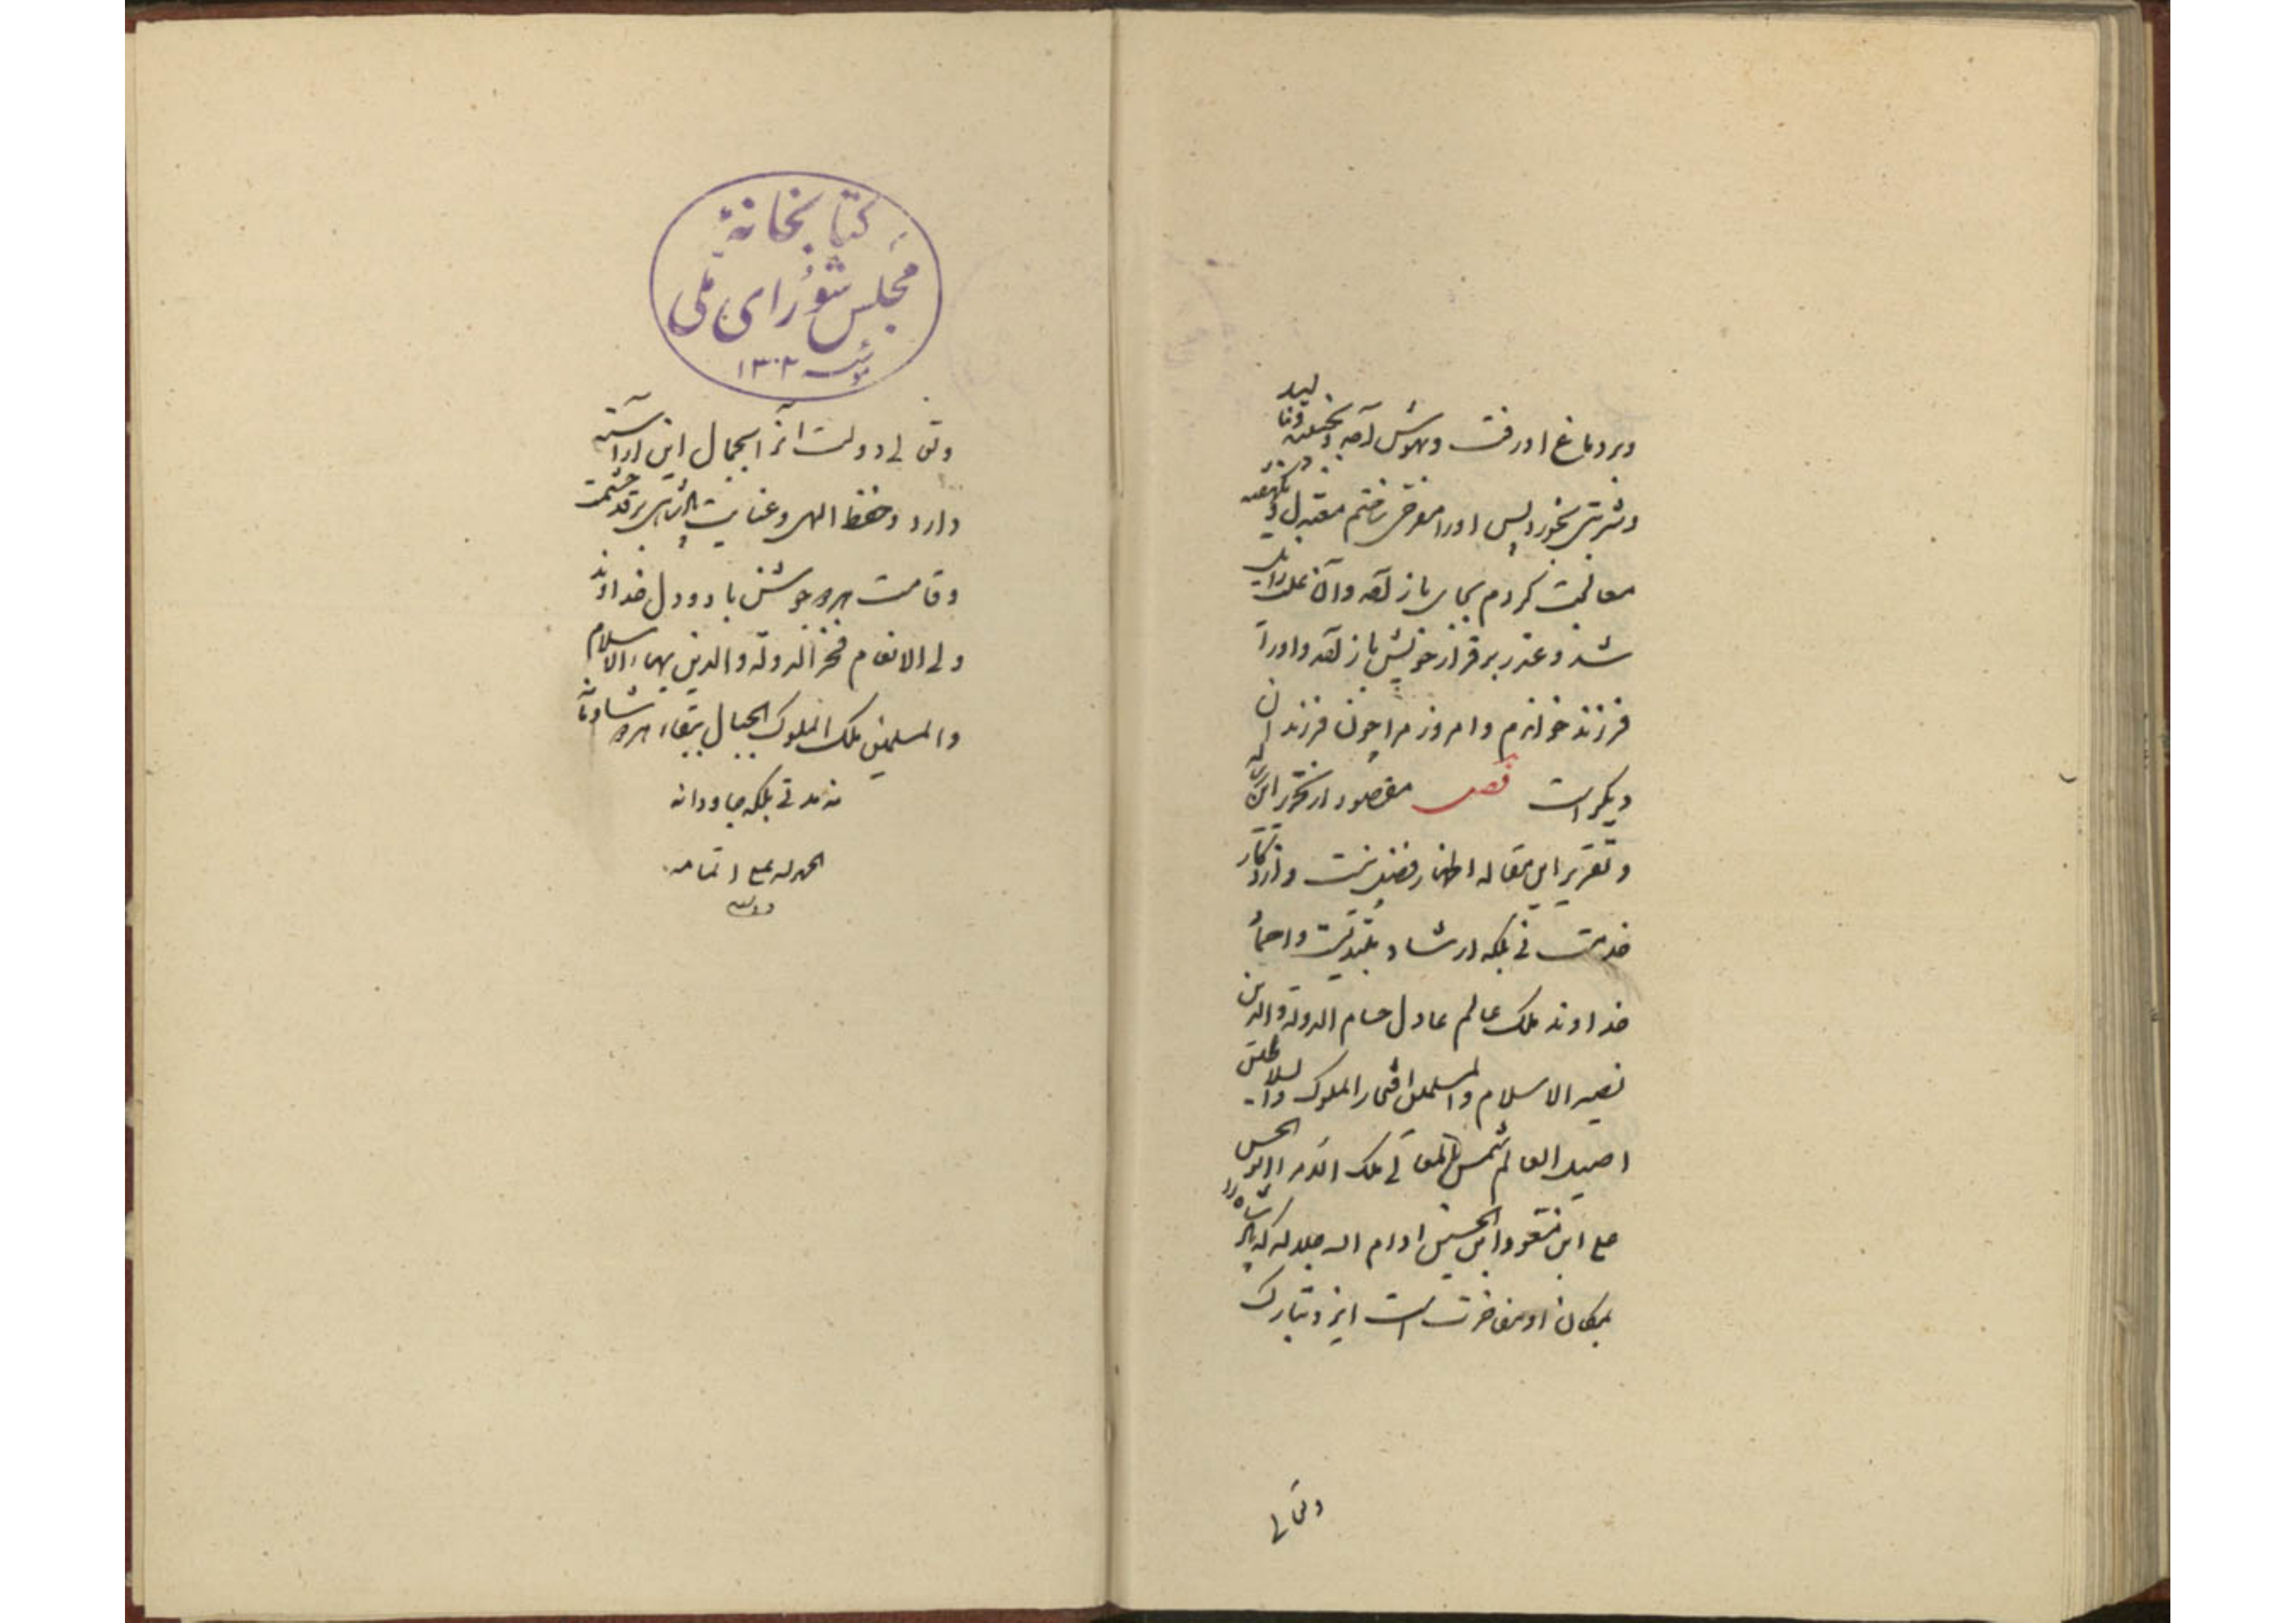 وبر دماغ او رفت وبهوش آمد وبجنبید ونالید
وشربتی بخورد پس اورا مفرحی ساختم معتدل ویکهفته
معالجت کردم بجای باز آمد وآن علت زایل
شد وعذر بر قرار خویش باز آمد واورا
فرزند خواندم وامروز مرا چون فرزندان
دیگر است فصل مقصود از تحریر این رساله
وتقریر این مقاله اظهار فضل نیست واذکار
خدمت نی بلکه ارشاد مبتدیست واحماد
خداوند ملک عالم عادل حسام الدولة والدین
نصیر الاسلام والمسلمین افتخار الملوک والسلاطین
اصیل العالم شمس المعالی ملک الامراء ابوالحسن
علی ابن مسعود ابن الحسین ادام الله جلاله که پادشاه را
بمکان او مفاخرت است ایزد تبارک
وتعالی
کتابخانهٔ
مجلس شورای ملی
مؤسسه ۱۳۰۲
وتعالی دولت آنرا بجمال این آراسته
دارد وحفظ الهی وعنایت پادشاهی بر قد حشمت
وقامت هر دو جوشن باد ودل خداوند
ولی الانعام فخر الدولة والدین بهاء الاسلام
والمسلمین ملک الملوک الجبال ببقاء هر دو شادمانه
نه مدتی بلکه جاودانه
الحمد لله علی اتمامه